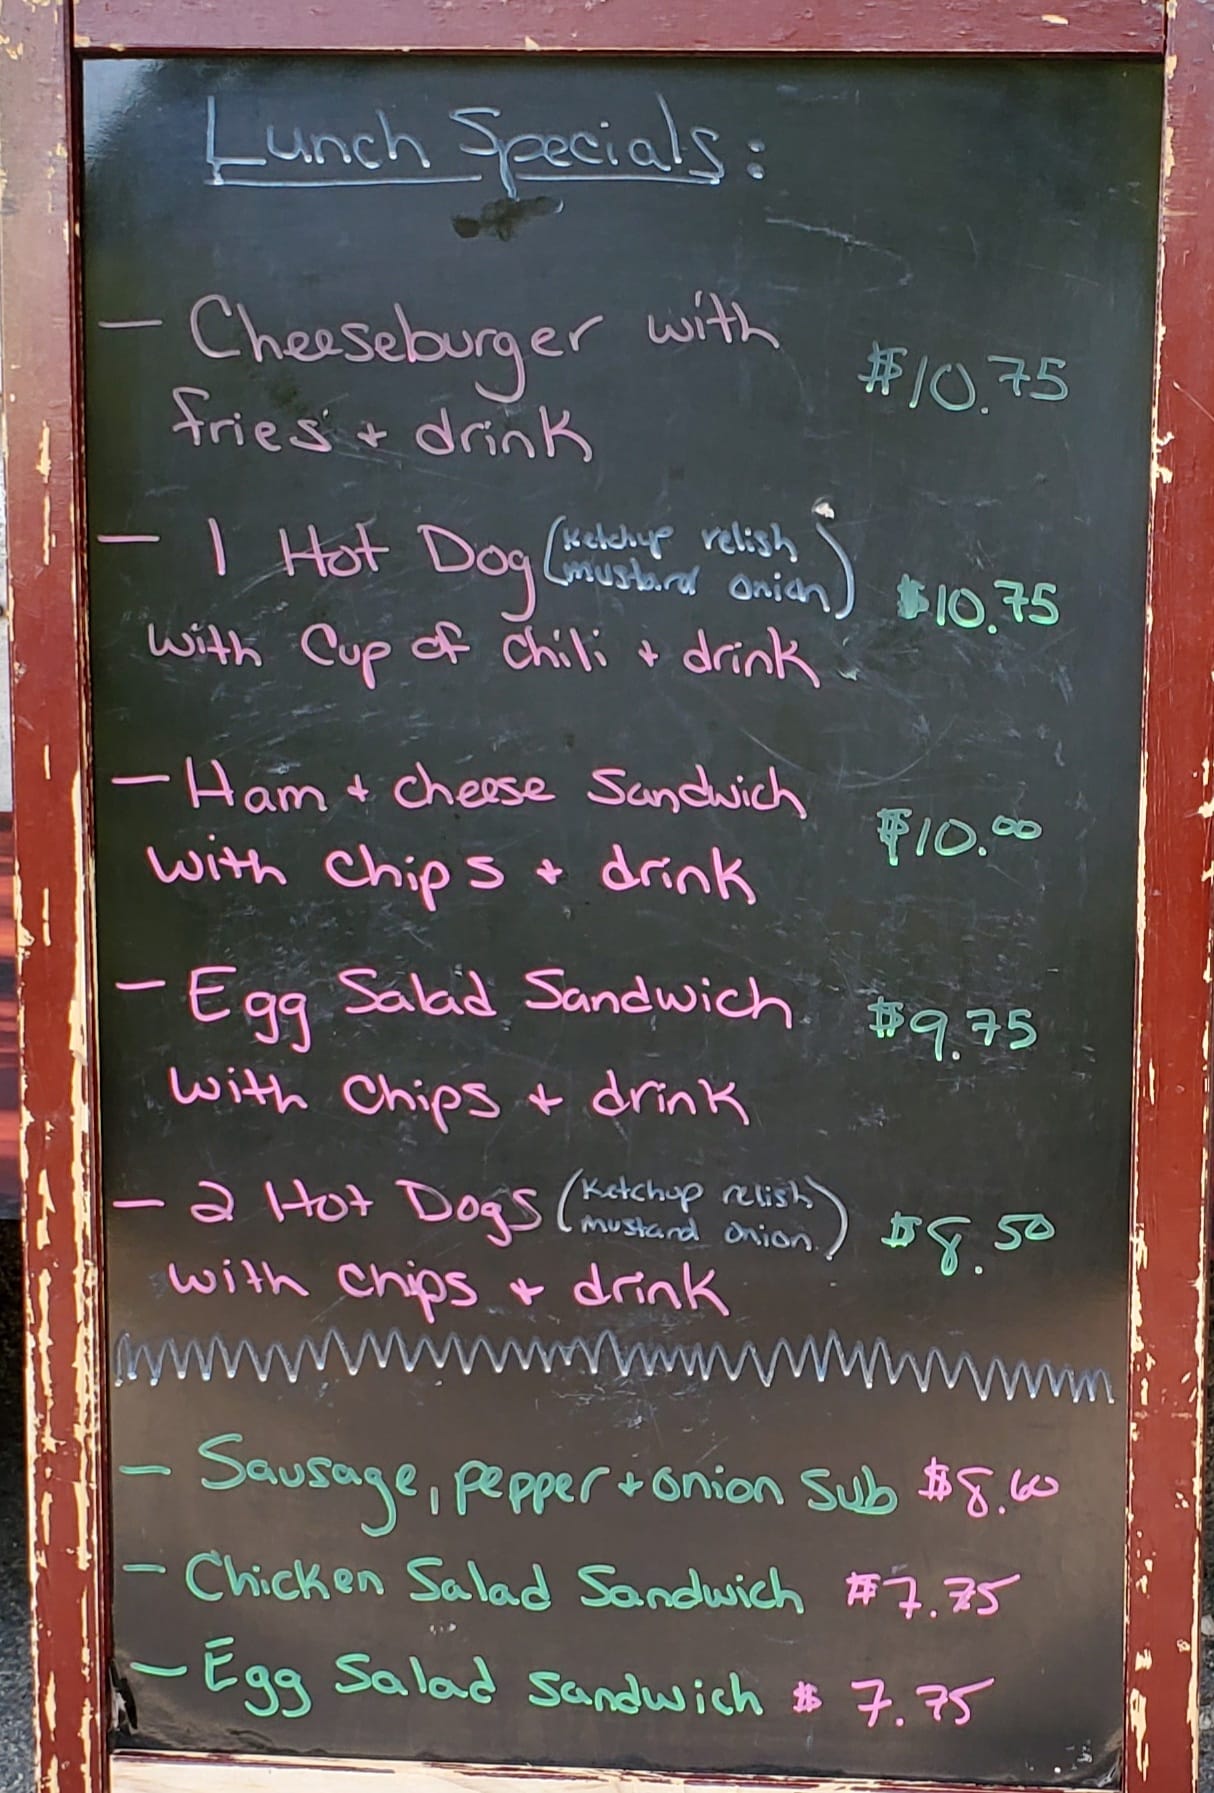 Lunch Specials:
- Cheeseburger with
fries + drink
$10.75
- 1 Hot Dog (ketchup relish
mustard onion)
with Cup of chili + drink
$10.75
- Ham + cheese Sandwich
with chips + drink
$10.00
- Egg Salad Sandwich
with chips + drink
$9.75
- 2 Hot Dogs (ketchup relish
mustard onion)
with chips + drink
$8.50
- Sausage, pepper + onion Sub $8.60
- Chicken Salad Sandwich $7.75
- Egg Salad Sandwich $7.75